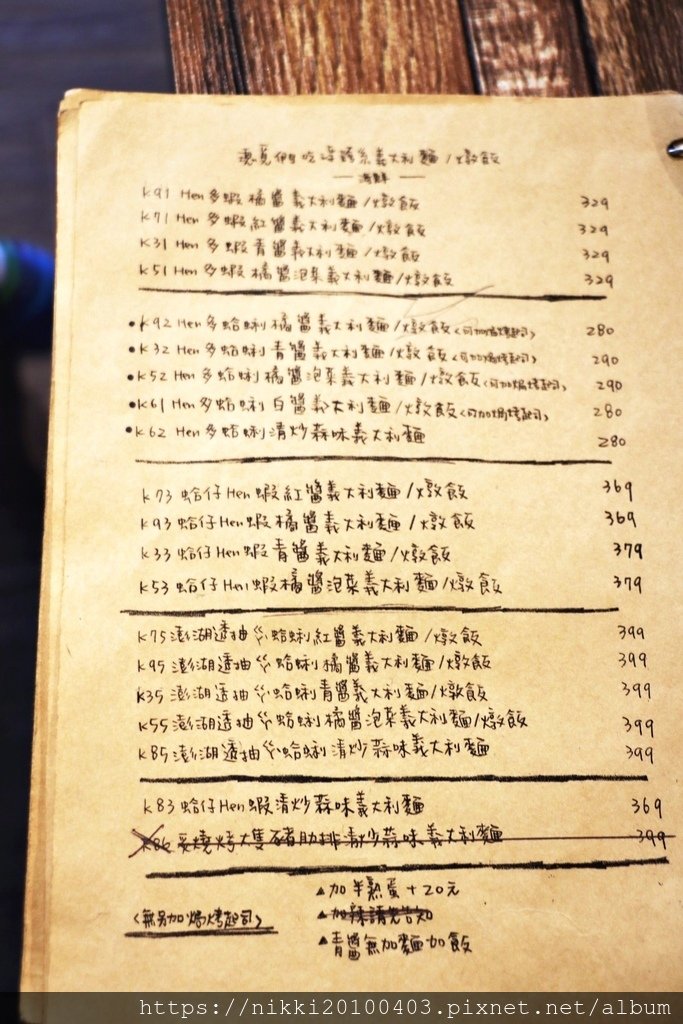 吃 義大利麵/燉飯
— 海鮮 —
K91 Hen多蝦橘醬義大利麵/燉飯 329
K71 Hen多蝦紅醬義大利麵/燉飯 329
K31 Hen多蝦青醬義大利麵/燉飯 329
K51 Hen多蝦橘醬泡菜義大利麵/燉飯 329
•K92 Hen多蛤蜊橘醬義大利麵/燉飯(可加焗烤起司) 280
•K32 Hen多蛤蜊青醬義大利麵/燉飯(可加焗烤起司) 290
•K52 Hen多蛤蜊橘醬泡菜義大利麵/燉飯(可加焗烤起司) 290
•K61 Hen多蛤蜊白醬義大利麵/燉飯(可加焗烤起司) 280
•K62 Hen多蛤蜊清炒蒜味義大利麵 280
K73 蛤仔Hen蝦紅醬義大利麵/燉飯 369
K93 蛤仔Hen蝦橘醬義大利麵/燉飯 369
K33 蛤仔Hen蝦青醬義大利麵/燉飯 379
K53 蛤仔Hen蝦橘醬泡菜義大利麵/燉飯 379
K75 澎湖透抽&蛤蜊紅醬義大利麵/燉飯 399
K95 澎湖透抽&蛤蜊橘醬義大利麵/燉飯 399
K35 澎湖透抽&蛤蜊青醬義大利麵/燉飯 399
K55 澎湖透抽&蛤蜊橘醬泡菜義大利麵/燉飯 399
K85 澎湖透抽&蛤蜊清炒蒜味義大利麵 399
K83 蛤仔Hen蝦清炒蒜味義大利麵 369
K86 燒烤大隻豬肋排清炒蒜味義大利麵 399
▲加半熟蛋+20元
(無另加焗烤起司)
▲加辣請先告知
▲青醬無加麵加飯
https://nikki20100403.pixnet.net/album